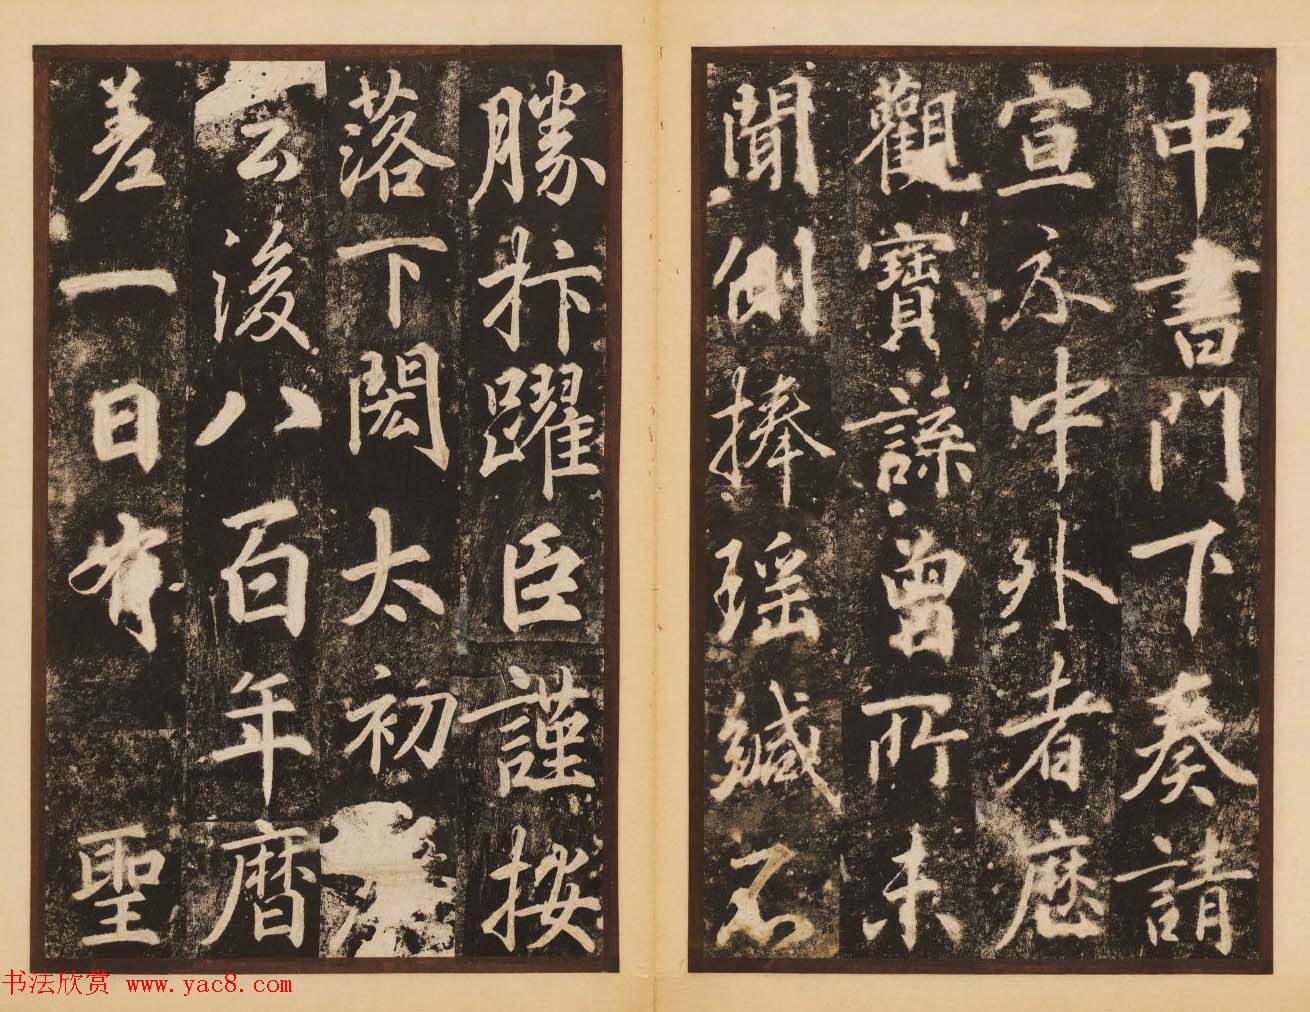 中書門下奏請
宣示中外者歷
觀寶諜曾所未
聞側捧瑤緘不
勝抃躍臣謹按
落下閎太初
云後八百年曆
差一日有聖
书法欣赏 www.yac8.com